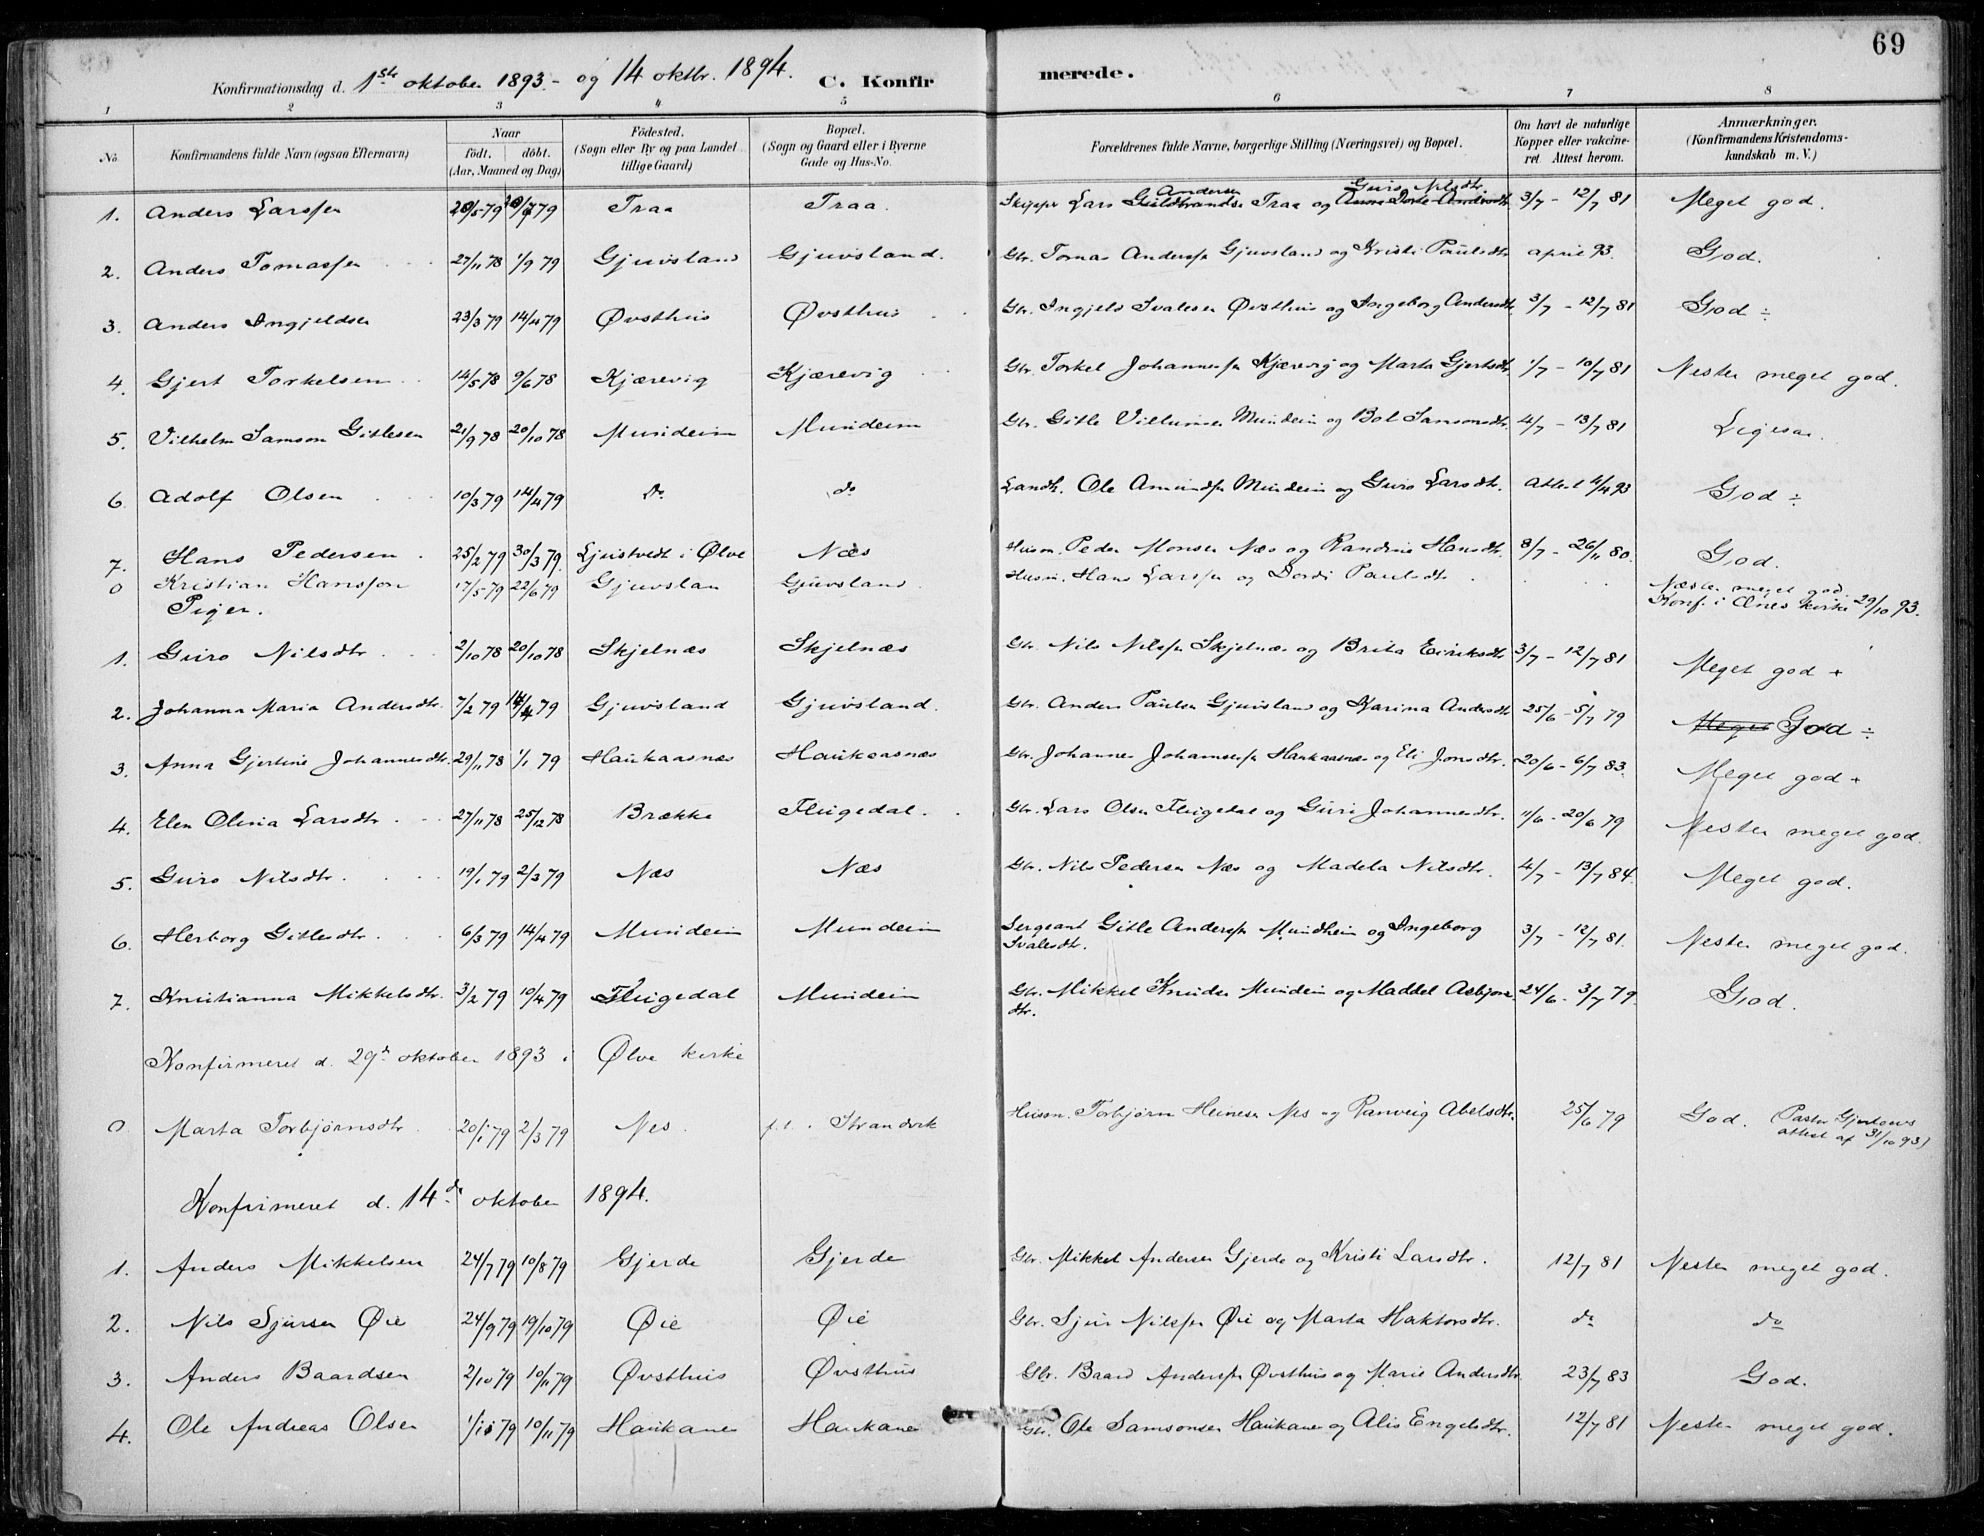 69
Konfirmationsdag d. 1ste oktober 1893 - og 14 oktbr. 1894. C. Konfirmerede.
1 2 3 4 5 6 7 8
No. Konfirmandens fulde Navn (ogsaa Efternavn) Naar födt. döbt. (Aar, Maaned og Dag) Födested. (Sogn eller By og paa Landet tillige Gaard) Bopæl. (Sogn og Gaard eller i Byerne Gade og Hus-No. Forældrenes fulde Navne, borgerlige Stilling (Næringsvei) og Bopæl. Om havt de naturlige Kopper eller vakcineret Attest herom. Anmærkninger. (Konfirmandens Kristendomskundskab m. V.)
Andersen Guro Nilsdtr.
1. Anders Larssen 79 79 Traa Traa. Skipper Lars Guldbrands. Traa og Anna Dorte Andersdtr. 3/7 - 12/7 81 Meget god.
2. Anders Tomassen 27/11 78 1/9 79 Gjuvsland Gjuvsland. Gbr. Tomas Anderss. Gjuvsland og Kristi Paulsdtr april 93. God.
3. Anders Ingjeldsen 23/3 79 14/4 79 Øvsthus Øvsthus Gbr. Ingjeld Ivalesen Øvsthus og Ingeborg Andersdtr. 3/7 - 12/7 81 God ÷
4. Gjert Torkelsen 14/5 78 9/6 78 Kjærevig Kjærevig Gbr. Torkel Johanness. Kjærevig og Marta Gjertsdtr. 1/7 - 10/7 81 Nesten meget god.
5. Vilhelm Samson Gitlesen 21/9 78 20/10 78 Mundeim Mundeim Gbr. Gitle Villumsen Mundeim og Bol Samsonsdtr. 4/7 - 13/7 81 Ligesaa.
6. Adolf Olsen 10/3 79 14/4 79 do do Landh. Ole Amundss. Mundeim og Guro Larsdtr. Attest 4/4 93 God ÷
7. Hans Pedersen. 25/2 79 30/3 79. Ljustvedt i Ølve Næs Husm. Peder Monsen Næs og Randine Hansdtr. 8/7 - 26/11 80. God.
0 Kristian Hansson 17/5 79 22/6 79 Gjuvslan Gjuvsland Husm. Hans Larssen og Dordi Paulsdtr Næsten meget god. Konf. i Ænes kirke 29/10 93.
Piger.
1. Guro Nilsdtr. 2/10 78 20/10 78 Skjelnæs Skjelnæs Gbr. Nils Nilss. Skjelnæs og Brita Eiriksdtr 3/7 - 12/7 81 Meget god +
2. Johanna Maria Andersdtr. 7/2 79 14/4 79 Gjuvsland Gjuvsland. Gbr. Anders Paulsen Gjuvsland og Karina Andersdtr 25/6 - 5/7 79 Meget God ÷
3. Anna Gjertine Johannesdtr. 29/11 78 1/1 79 Haukaasnæs Haukaasnæs Gbr. Johannes Johanness. Haukaasnæs og Eli Jonsdtr. 20/6 - 6/7 83. Meget god +
4. Elen Olina Larsdtr. 27/11 78 25/12 78 Brække Flugedal. Gbr. Lars Olsen Flugedal og Guri Johannesdtr. 11/6 - 20/6 79 Nesten meget god.
5. Guro Nilsdtr. 19/1 79 2/3 79 Næs Næs Gbr. Nils Pedersen Næs og Madela Nilsdtr. 4/7 - 13/7 84. Meget god.
6. Herborg Gitlesdtr. 6/3 79 14/4 79 Mundeim Mundeim Sergeant Gitle Anderss. Mundheim og Ingeborg Ivalesdtr. 3/7 - 12/7 81. Nesten meget god.
7. Knutianna Mikkelsdtr. 3/2 79 10/4 79 Flugedal Mundeim Gbr. Mikkel Knudsen Mundeim og Maddel Asbjørnsdtr. 24/6 - 3/7 79 God.
Konfirmeret d. 29de oktober 1893 i Ølve kirke
0 Marta Torbjørnsdtr. 20/1 79 2/3 79 Nes. p.t. Strandvik Husm. Torbjørn Heinesen Nes og Ranveig Abelsdtr. 25/6 79 God. (Pastor Gjertsens attest af 31/10 93)
Konfirmeret d. 14de oktober 1894.
1. Anders Mikkelsen 24/7 79 10/8 79 Gjerde Gjerde Gbr. Mikkel Andersen Gjerde og Kristi Larsdtr. 12/7 81 Nesten meget god.
2. Nils Sjursen Øie 24/9 79 19/10 79 Øie Øie Gbr. Sjur Nilss. Øie og Marta Haktorsdtr. do do
3. Anders Baardsen 2/10 79 10/11 79 Øvsthus Øvsthus Gbr. Baard Anderss. Øvsthus og Marie Andersdtr. 23/7 83 God.
4. Ole Andreas Olsen 1/10 79 10/11 79 Haukanes Haukanes Gbr. Ole Samsonsen Haukanes og Alis Engelsdtr. 12/7 81 Nesten meget god.